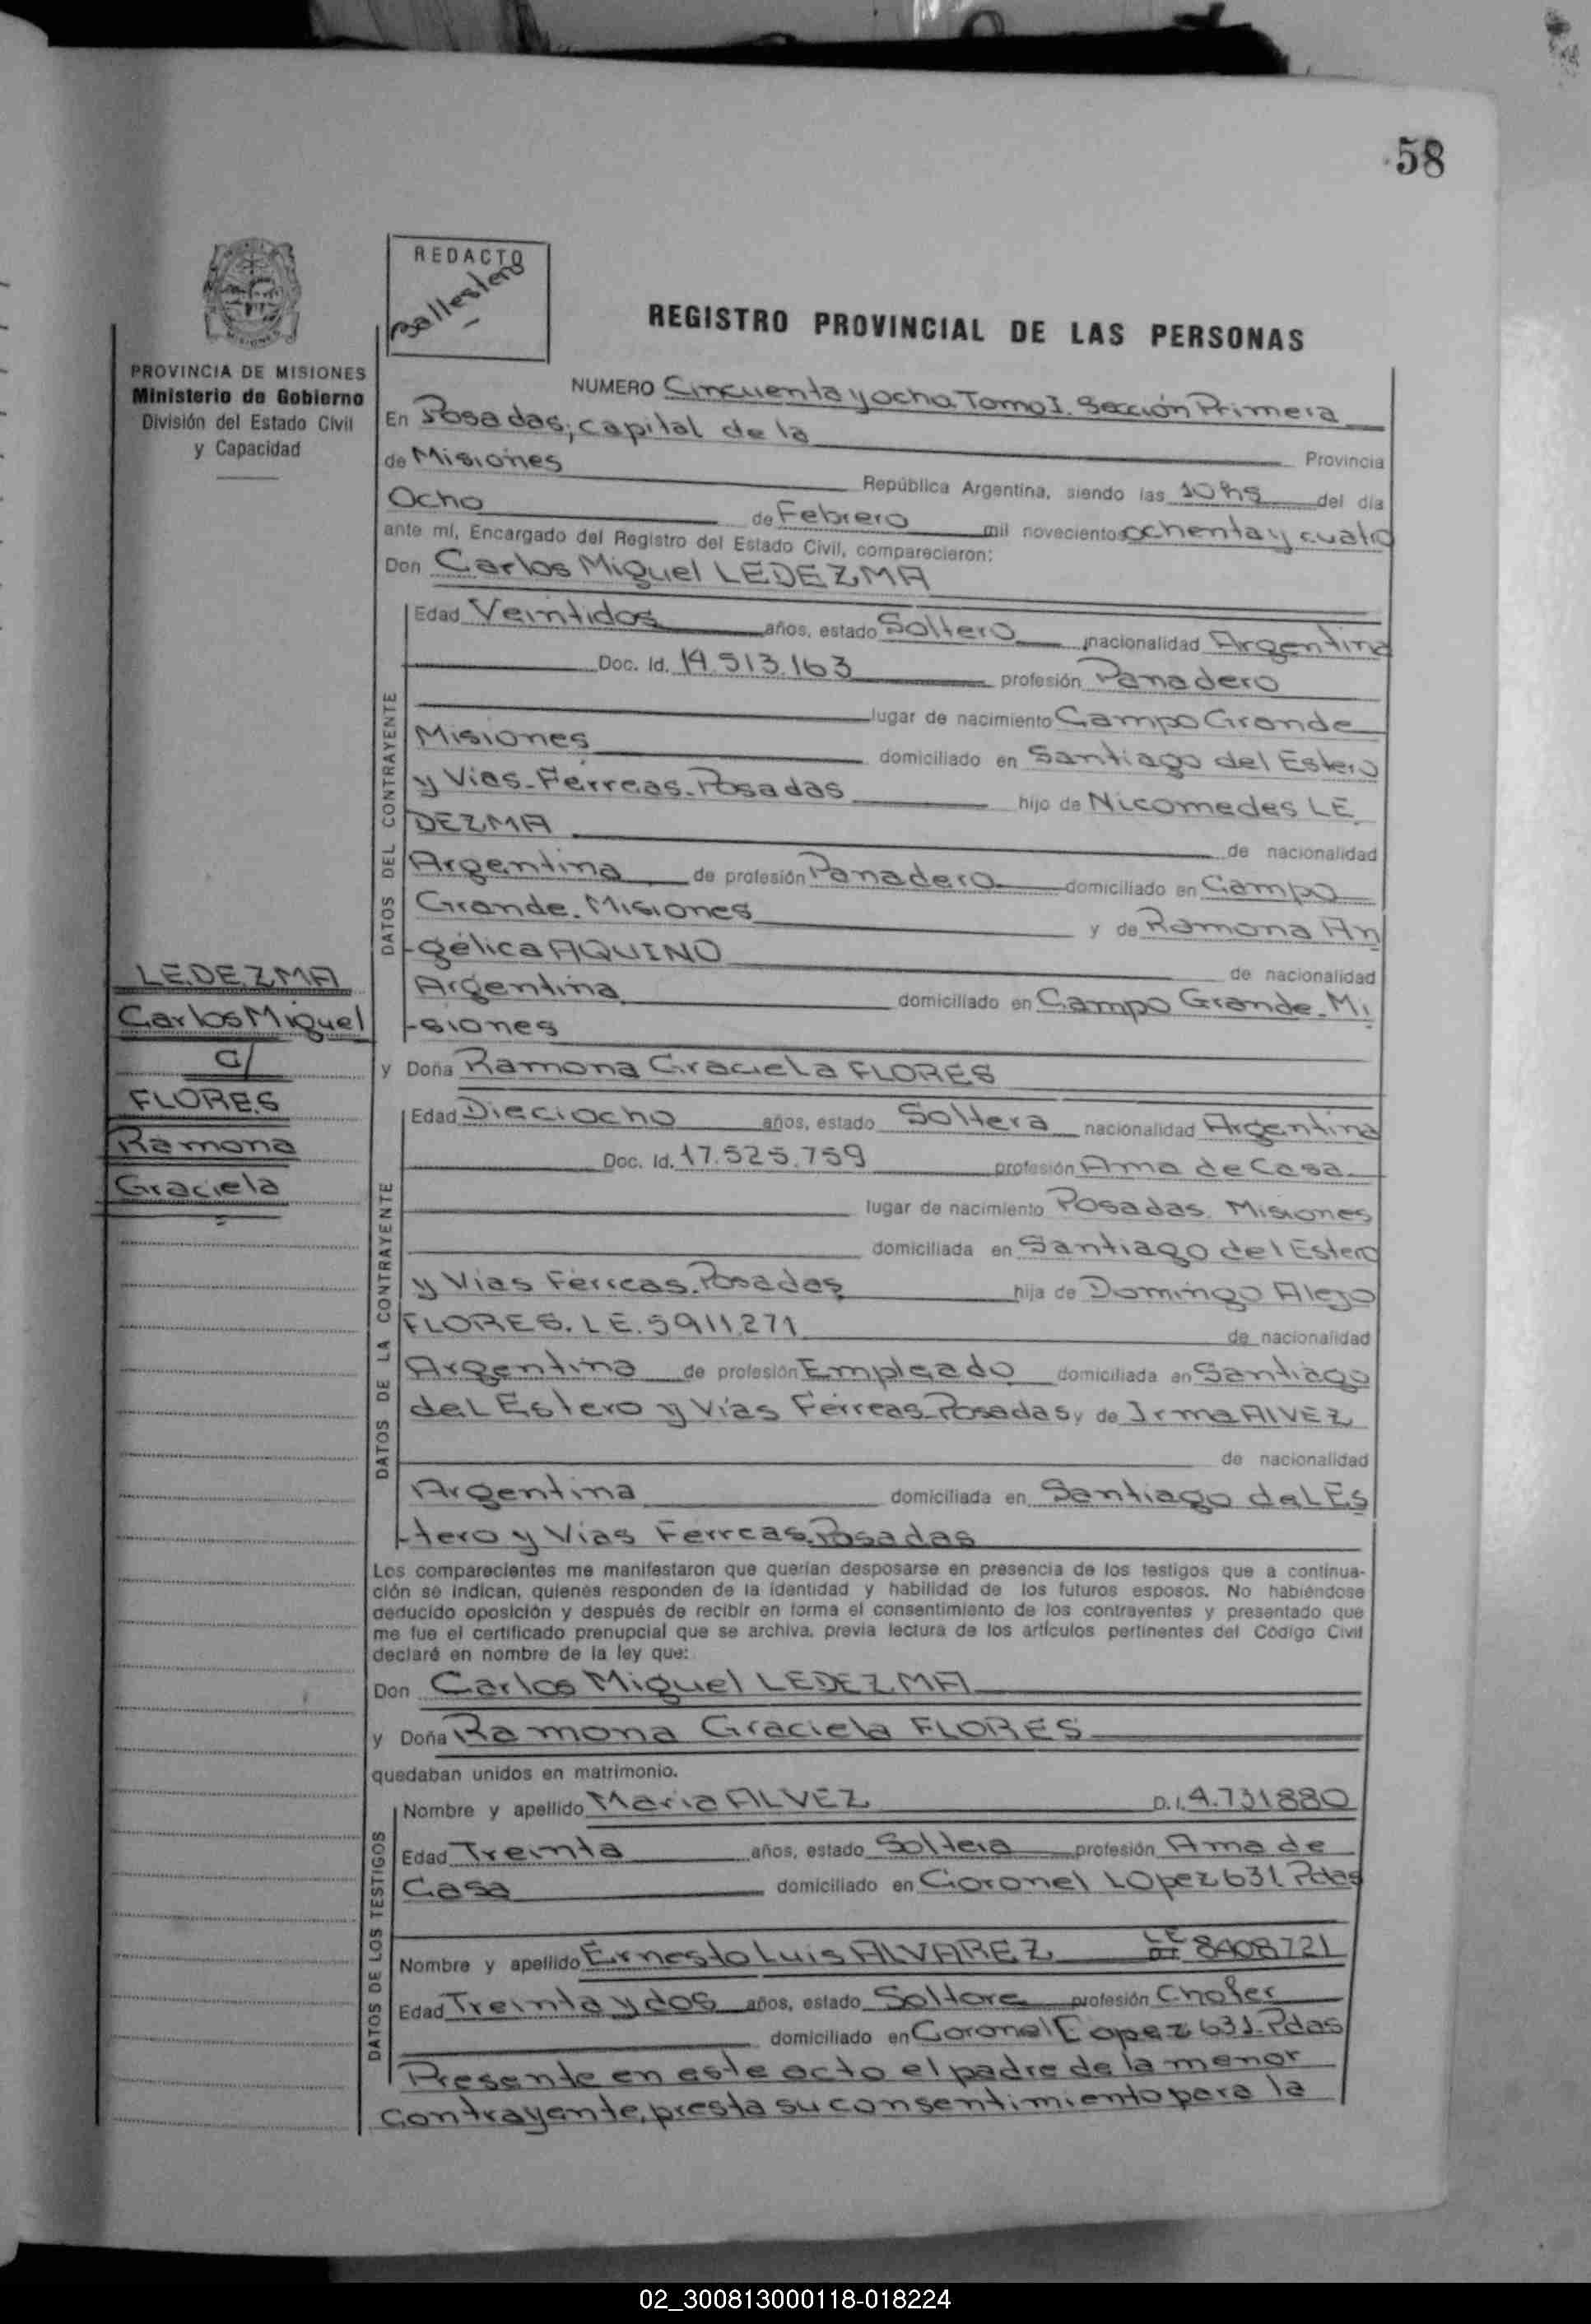 58
REDACTO
Ballestero
REGISTRO PROVINCIAL DE LAS PERSONAS
PROVINCIA DE MISIONES
Ministerio de Gobierno
División del Estado Civil
y Capacidad
NUMERO Cincuenta y ocho. Tomo I. Sección Primera
En Posadas, capital de la Provincia
de Misiones República Argentina, siendo las 10 hs del día
Ocho de Febrero mil novecientos ochenta y cuatro
ante mí, Encargado del Registro del Estado Civil, comparecieron:
Don Carlos Miguel LEDEZMA
DATOS DEL CONTRAYENTE
Edad Veintidos años, estado Soltero nacionalidad Argentina
Doc. Id. 14.513.163 profesión Panadero
lugar de nacimiento Campo Grande
Misiones domiciliado en Santiago del Estero
y Vias Férreas. Posadas hijo de Nicomedes LE
DEZMA de nacionalidad
Argentina de profesión Panadero domiciliado en Campo
Grande. Misiones y de Ramona An
-gélica AQUINO de nacionalidad
Argentina domiciliado en Campo Grande. Mi
-siones
LEDEZMA
Carlos Miguel
c/
FLORES
Ramona
Graciela
y Doña Ramona Graciela FLORES
DATOS DE LA CONTRAYENTE
Edad Dieciocho años, estado Soltera nacionalidad Argentina
Doc. Id. 17.525.759 profesión Ama de Casa
lugar de nacimiento Posadas. Misiones
domiciliada en Santiago del Estero
y Vias Férreas. Posadas hija de Domingo Alejo
FLORES. L.E. 5911271 de nacionalidad
Argentina de profesión Empleado domiciliada en Santiago
del Estero y Vías Férreas. Posadas y de Irma ALVEZ
de nacionalidad
Argentina domiciliada en Santiago del Es
-tero y Vias Ferreas. Posadas
Los comparecientes me manifestaron que querían desposarse en presencia de los testigos que a continua-
ción se indican, quienes responden de la identidad y habilidad de los futuros esposos. No habiéndose
deducido oposición y después de recibir en forma el consentimiento de los contrayentes y presentado que
me fue el certificado prenupcial que se archiva, previa lectura de los artículos pertinentes del Código Civil
declaré en nombre de la ley que:
Don Carlos Miguel LEDEZMA
y Doña Ramona Graciela FLORES
quedaban unidos en matrimonio.
DATOS DE LOS TESTIGOS
Nombre y apellido Maria ALVEZ D.I. 4.731880
Edad Treinta años, estado Soltera profesión Ama de
Casa domiciliado en Coronel LOpez 631 Pdas
Nombre y apellido Ernesto Luis ALVAREZ LE 8408721
Edad Treinta y dos años, estado Soltero profesión Chofer
domiciliado en Coronel Lopez 631. Pdas
Presente en este acto el padre de la menor
contrayente, presta su consentimiento para la
02_300813000118-018224